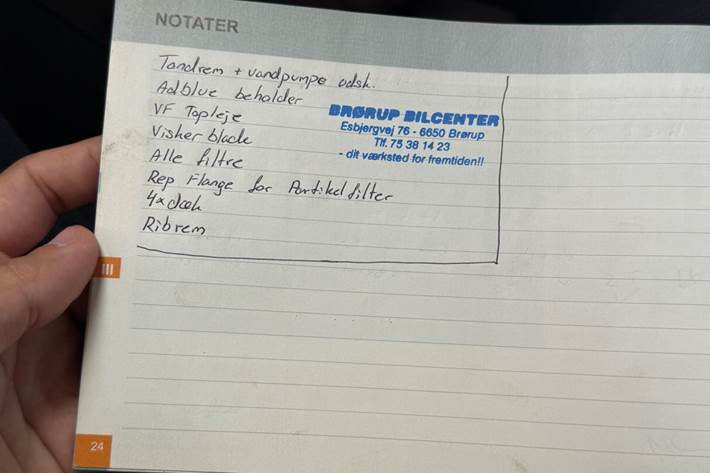 NOTATER
Tandrem + vandpumpe udsk.
Adblue beholder
VF Topleje
Visker blade
Alle filtre
Rep Flange for Partikelfilter
4x dæk
Ribrem
BRØRUP BILCENTER
Esbjergvej 76 - 6650 Brørup
Tlf. 75 38 14 23
- dit værksted for fremtiden!!
III
24